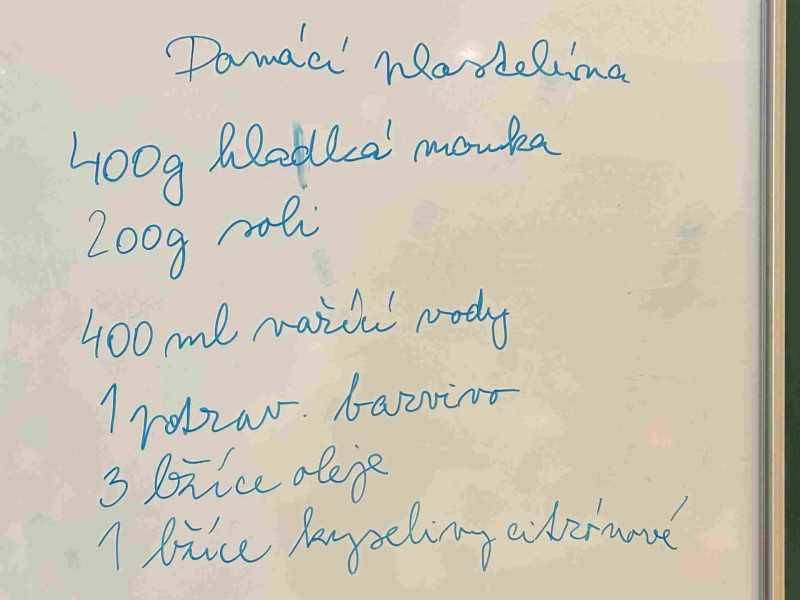 Domácí plastelína
400g hladká mouka
200g soli
400 ml vařící vody
1 potrav. barvivo
3 lžíce oleje
1 lžíce kyseliny citrónové